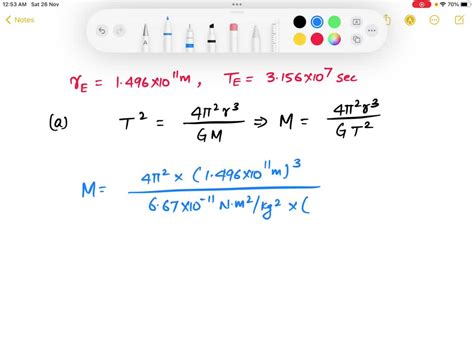 12:53 AM Sat 26 Nov
70%
Notes
A
r_E = 1.496×10¹¹m, T_E = 3.156×10⁷ sec
(a) T² = 4π²r³ / GM ⇒ M = 4π²r³ / GT²
M = 4π² × (1.496×10¹¹m)³ / 6.67×10⁻¹¹ N·m²/kg² × (